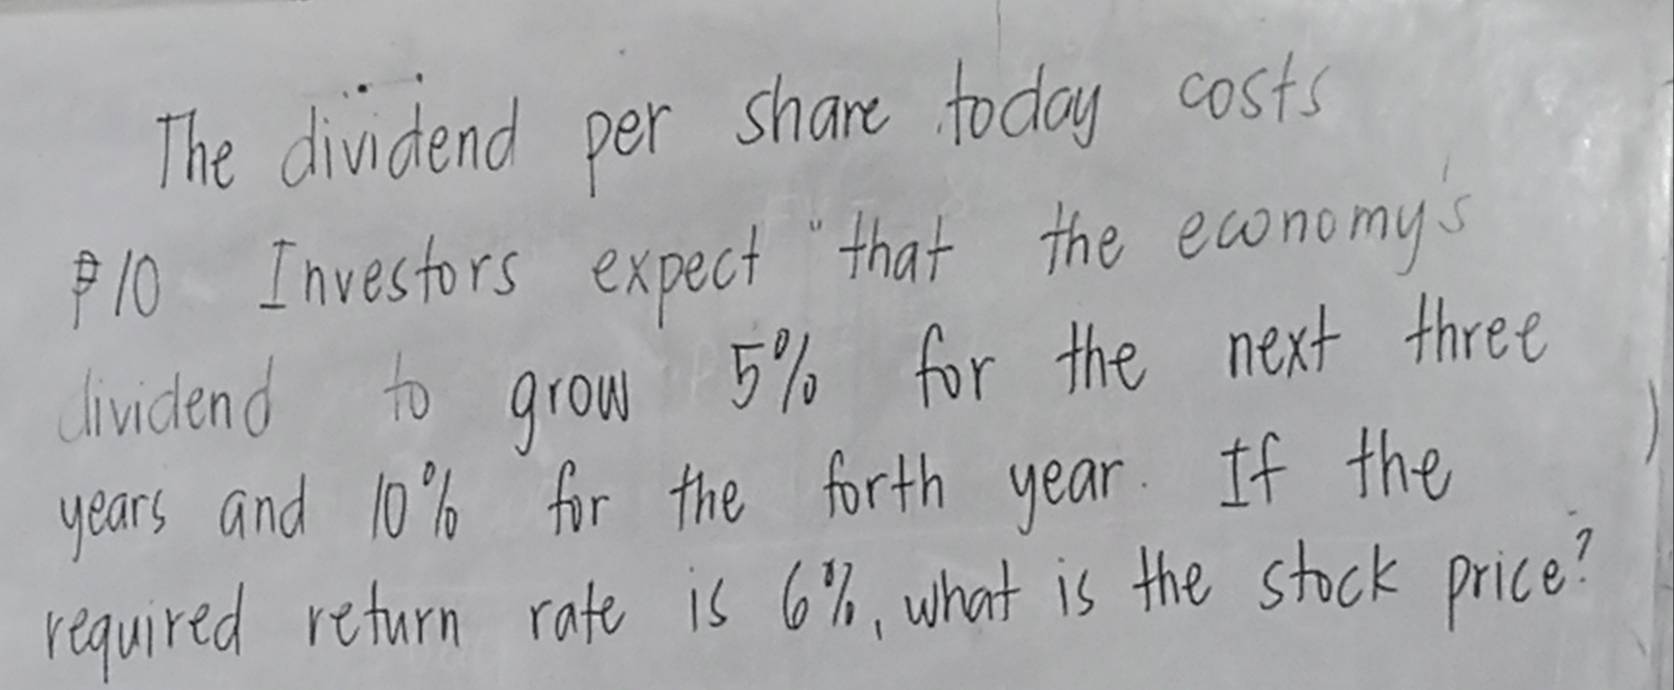 The dividend per share today costs
₱10 Investors expect "that the economy's
dividend to grow 5% for the next three
years and 10% for the forth year. If the
required return rate is 6%, what is the stock price?